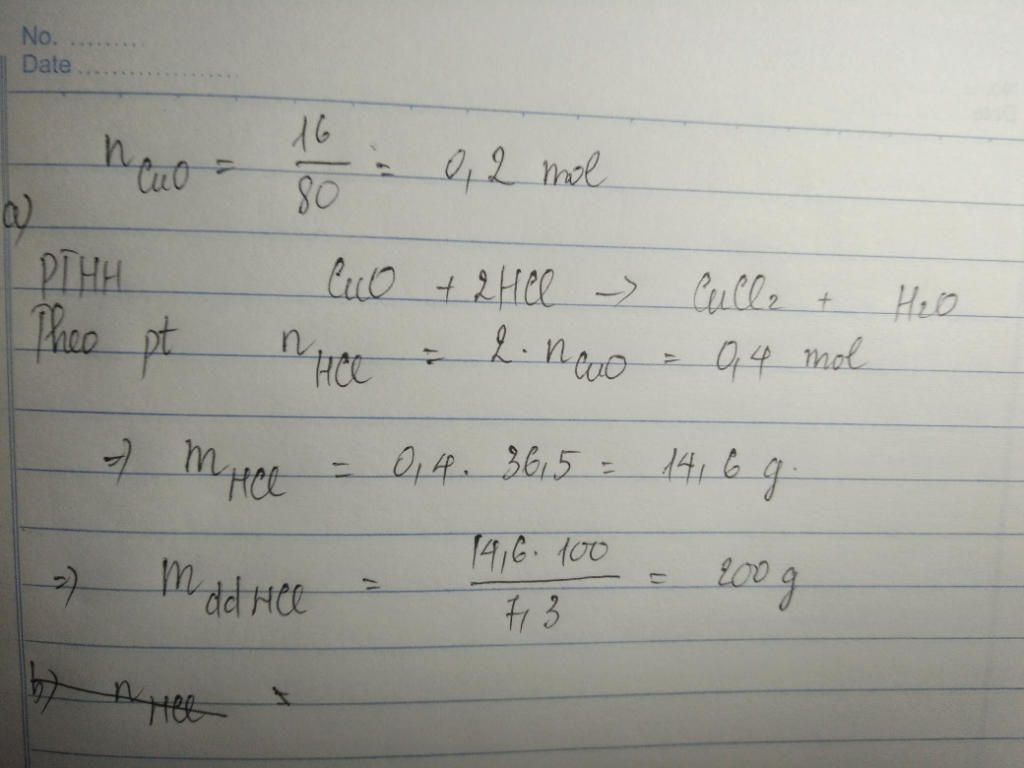 No. .........
Date ..................
n CuO = 16/80 = 0,2 mol
a)
PTHH CuO + 2HCl → CuCl2 + H2O
Theo pt n HCl = 2 . n CuO = 0,4 mol
=) m HCl = 0,4 . 36,5 = 14,6 g.
=) m dd HCl = 14,6 . 100 / 7,3 = 200 g
b) n HCl